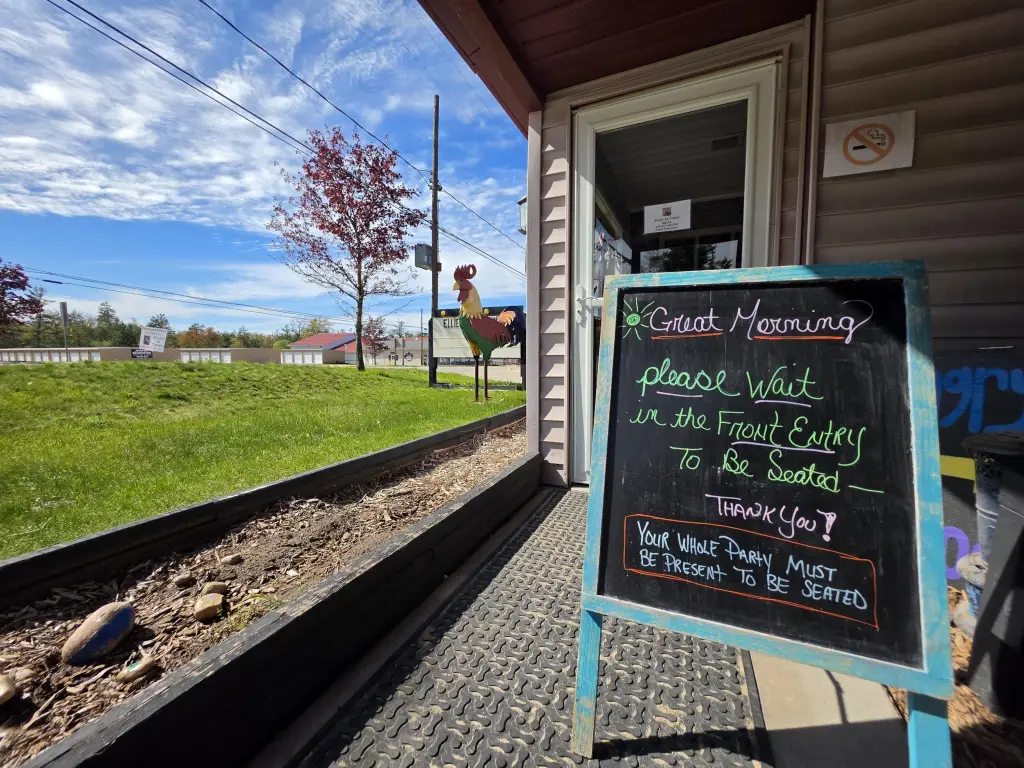 Great Morning
please Wait
in the Front Entry
To Be Seated —
Thank You!
Your Whole Party Must
Be Present To Be Seated
ELLIE